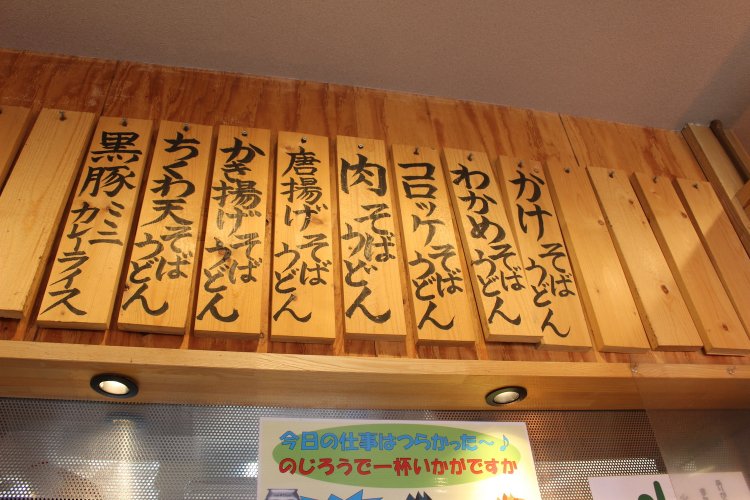 かけそばうどん
わかめそばうどん
コロッケそばうどん
肉そばうどん
唐揚げそばうどん
かき揚げそばうどん
ちくわ天そばうどん
黒豚ミニカレーライス
今日の仕事はつらかった〜♪
のじろうで一杯いかがですか